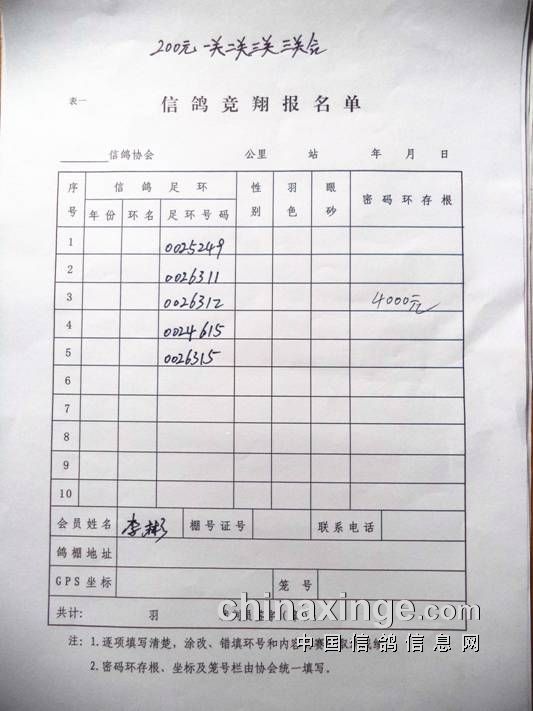 200元 一关二关三关 三关会
表一
信鸽竞翔报名单
信鸽协会 公里 站 年 月 日
序号 信鸽足环 性别 羽色 眼砂 密码环存根
年份 环名 足环号码
1 0025249
2 0026311
3 0026312 4000元
4 0024615
5 0026315
6
7
8
9
10
会员姓名 李彬 棚号证号 联系电话
鸽棚地址
GPS坐标 笼号
共计: 羽
chinaxinge.com
中国信鸽信息网
注: 1.逐项填写清楚,涂改、错填环号和内容
2.密码环存根、坐标及笼号栏由协会统一填写。